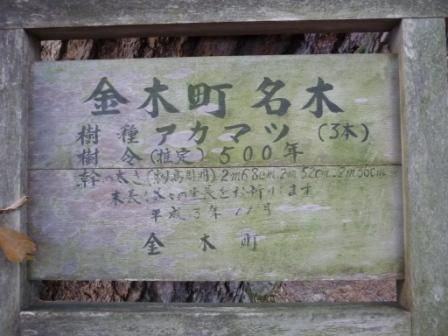 金木町名木
樹種 アカマツ (3本)
樹令(推定)500年
幹の太さ(胸高周囲)2m68cm 2m52cm 2m50cm
末長く の生長をお祈りします
平成3年11月
金木町